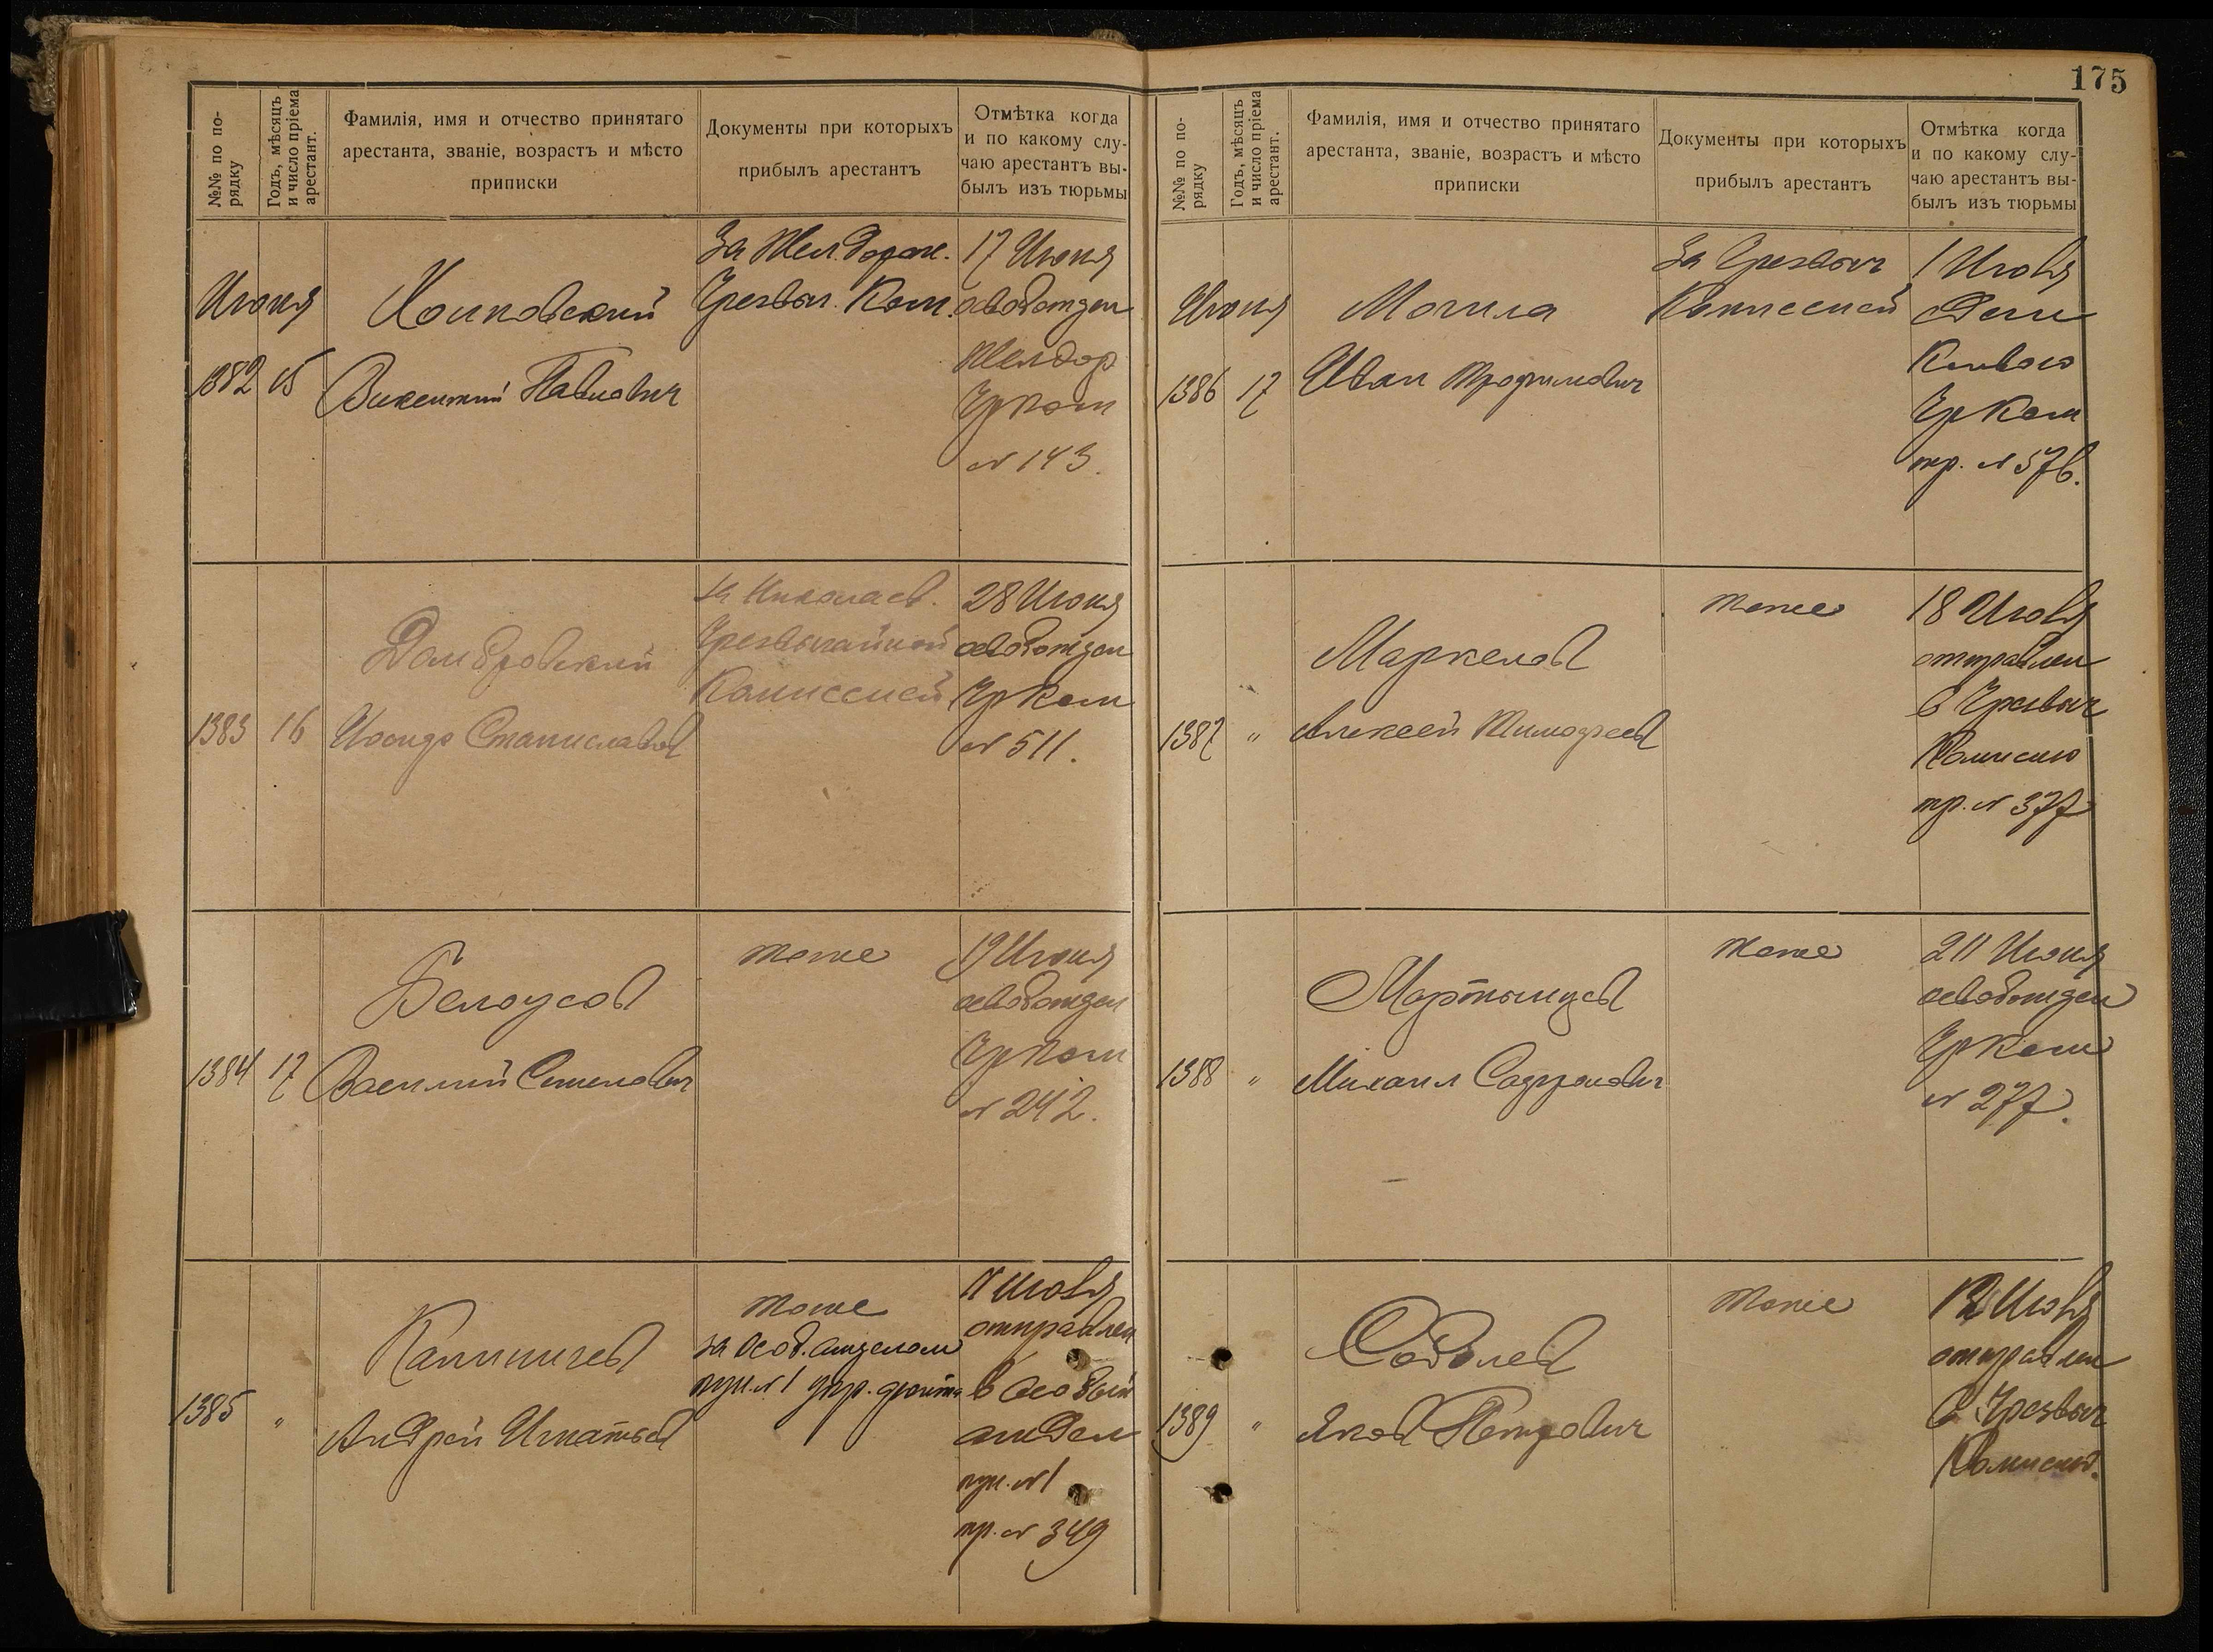 №№ по по-
рядку
Годъ, мѣсяцъ
и число пріема
арестант.
Фамилія, имя и отчество принятаго
арестанта, званіе, возрастъ и мѣсто
приписки
Документы при которыхъ
прибылъ арестантъ
Отмѣтка когда
и по какому слу-
чаю арестантъ вы-
былъ изъ тюрьмы
Июня
1382 15
Викентий Павлович
За Жел.дорож.
Чрезвыч. Ком.
17 Июня
освобожден
Желдор
Чрком
№ 143.
1383 16
Домбровский
Станиславов
за Николаев.
Чрезвычайной
Комиссией
28 Июня
освобожден
ЧрКом
№ 511.
1384 17
Белоусов
Василий Семенович
тоже
19 Июня
освобожден
Чрком
№ 242.
1385 "
Андрей Игнатьев
тоже
за особ. отделом
пун. № 1 упр. фронта
11 Июля
отправлен
в особый
отдел
пун. № 1
пр. № 349
175
№№ по по-
рядку
Годъ, мѣсяцъ
и число пріема
арестант.
Фамилія, имя и отчество принятаго
арестанта, званіе, возрастъ и мѣсто
приписки
Документы при которыхъ
прибылъ арестантъ
Отмѣтка когда
и по какому слу-
чаю арестантъ вы-
былъ изъ тюрьмы
Июня
1386 17
Могила
Иван Трофимович
За Чрезвыч
Комиссией
1 Июля
ЧрКом
пр. № 576.
1387 "
Маркелов
Алексей Тимофеев
тоже
18 Июля
отправлен
в Чрезвыч
Комисию
пр. № 377
1388 "
Мартынцев
Михаил Софронович
тоже
21 Июня
освобожден
ЧрКом
№ 277.
1389 "
Соболев
Яков Петрович
тоже
12 Июля
отправлен
в Чрезвыч
Комисию.